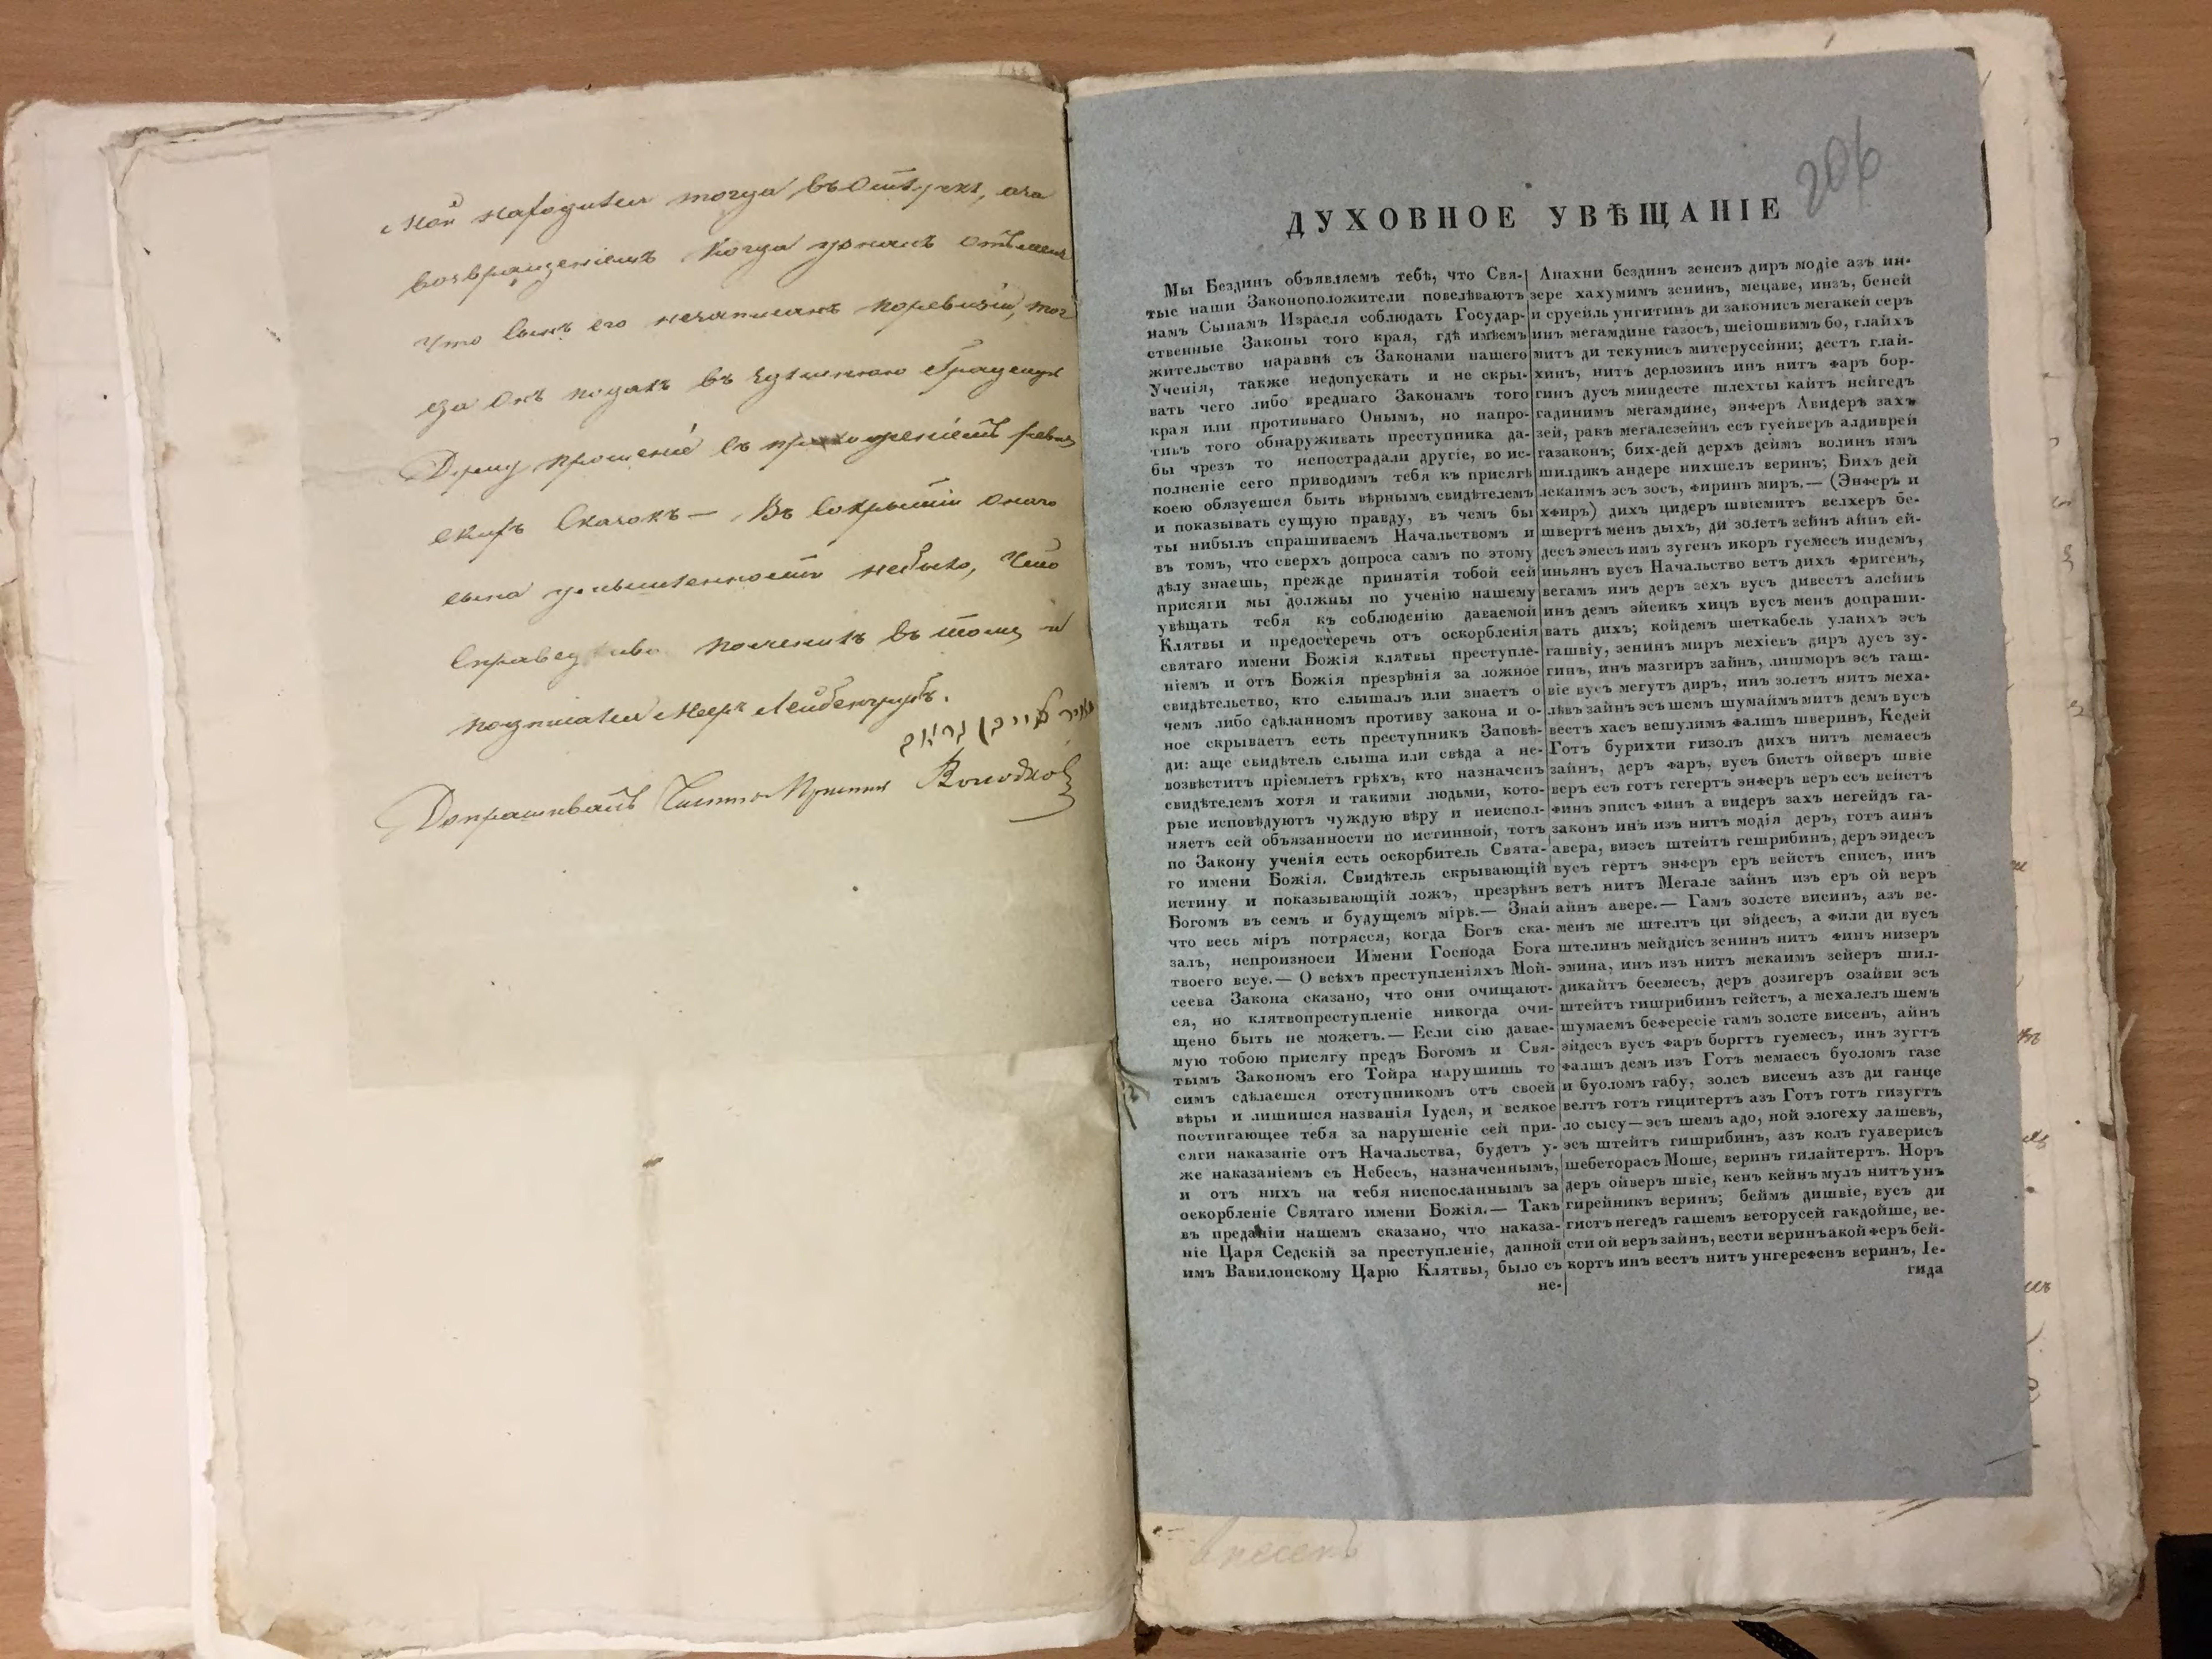 мой находился тогда въ отлучкѣ, а за
возвращеніемъ когда узналъ отъ меня
что сынъ его незаписанъ поревизіи, тог
да онъ подалъ въ здѣшнюю Градскую
Думу прошеніе съ приложеніемъ ревиз
скихъ Сказокъ — Въ сокрытіи онаго
сына умышленности небыло, что
справедливо показалъ въ томъ и
подписался Мееръ Лейбенгрубъ.
Допрашивалъ
206
ДУХОВНОЕ УВѢЩАНІЕ
Мы Бездинъ объявляемъ тебѣ, что Свя-
тые наши Законоположители повелѣваютъ
намъ Сынамъ Израеля соблюдать Государ-
ственные Законы того края, гдѣ имѣемъ
жительство наравнѣ съ Законами нашего
Ученія, также недопускать и не скры-
вать чего либо вреднаго Законамъ того
края или противнаго Онымъ, но напро-
тивъ того обнаруживать преступника да-
бы чрезъ то непострадали другіе, во ис-
полненіе сего приводимъ тебя къ присягѣ
коею обязуешся быть вѣрнымъ свидѣтелемъ
и показывать сущую правду, въ чемъ бы
ты нибылъ спрашиваемъ Начальствомъ и
въ томъ, что сверхъ допроса самъ по этому
дѣлу знаешь, прежде принятія тобой сей
присяги мы должны по ученію нашему
увѣщать тебя къ соблюденію даваемой
Клятвы и предостеречь отъ оскорбленія
святаго имени Божія клятвы преступле-
ніемъ и отъ Божія презрѣнія за ложное
свидѣтельство, кто слышалъ или знаетъ о
чемъ либо сдѣланномъ противу закона и о-
ное скрываетъ есть преступникъ Заповѣ-
ди: аще свидѣтель слыша или свѣда а не-
возвѣститъ пріемлетъ грѣхъ, кто назначенъ
свидѣтелемъ хотя и такими людьми, кото-
рые исповѣдуютъ чуждую вѣру и неиспол-
няетъ сей объязанности по истинной, тотъ
по Закону ученія есть оскорбитель Свята-
го имени Божія. Свидѣтель скрывающій
истину и показывающій ложъ, презрѣнъ
Богомъ въ семъ и будущемъ мірѣ.— Знай
что весь міръ потрясся, когда Богъ ска-
залъ, непроизноси Имени Господа Бога
твоего всуе.— О всѣхъ преступленіяхъ Мой-
сеева Закона сказано, что они очищают-
ся, но клятвопреступленіе никогда очи-
щено быть не можетъ.— Если сію давае-
мую тобою присягу предъ Богомъ и Свя-
тымъ Закономъ его Тойра нарушишь то
симъ сдѣлаешся отступникомъ отъ своей
вѣры и лишишся названія Іудея, и всякое
постигающее тебя за нарушеніе сей при-
сяги наказаніе отъ Начальства, будетъ у-
же наказаніемъ съ Небесъ, назначеннымъ,
и отъ нихъ на тебя ниспосланнымъ за
оскорбленіе Святаго имени Божія.— Такъ
въ преданіи нашемъ сказано, что наказа-
ніе Царя Седскій за преступленіе, данной
имъ Вавилонскому Царю Клятвы, было съ
не-
Анахни бездинъ зененъ диръ модіе азъ ин-
зере хахумимъ зенинъ, мецаве, инзъ, беней
и сруейль унгитинъ ди законисъ мегакей серъ
инъ мегамдине газосъ, шеіошвимъ бо, глайхъ
митъ ди текунисъ митерусейни; дестъ глай-
хинъ, нитъ дерлозинъ инъ нитъ фаръ бор-
гинъ дусъ миндесте шлехты кайтъ нейгедъ
гадинимъ мегамдине, энферъ Авидерѣ захъ
зей, ракъ мегалезейнъ есъ гуейверъ алдиврей
газаконъ; бих-дей дерхъ деймъ волинъ имъ
шилдикъ андере нихшелъ веринъ; Бихъ дей
лекаимъ эсъ зосъ, фиринъ миръ.— (Энферъ и
хфиръ) дихъ цидеръ швіемитъ велхеръ бе-
швертъ менъ дыхъ, ди золетъ зейнъ айнъ ей-
десъ эмесъ имъ зугенъ икоръ гуемесъ индемъ,
иньянъ вусъ Начальство ветъ дихъ фригенъ,
вегамъ инъ деръ зехъ вусъ дивестъ алейнъ
инъ демъ эйсикъ хицъ вусъ менъ допраши-
вать дихъ; койдемъ шеткабель улаихъ эсъ
гашвіу, зенинъ миръ мехіевъ диръ дусъ зу-
гинъ, инъ мазгиръ зайнъ, лишморъ эсъ гаш-
віе вусъ мегутъ диръ, инъ золетъ нитъ меха-
лѣвъ зайнъ эсъ шемъ шумаймъ митъ демъ вусъ
вестъ хасъ вешулимъ фалшъ шверинъ, Кедей
Готъ бурихти гизолъ дихъ нитъ мемаесъ
зайнъ, деръ фаръ, вусъ бистъ ойверъ швіе
веръ есъ готъ гегертъ энферъ веръ есъ вейстъ
финъ эписъ финъ а видеръ захъ негейдъ га-
законъ инъ изъ нитъ модія деръ, готъ аинъ
авера, визсъ штейтъ гешрибинъ, деръ эидесъ
вусъ гертъ энферъ еръ вейстъ еписъ, инъ
ветъ нитъ Мегале зайнъ изъ еръ ой веръ
айнъ авере.— Гамъ золсте висинъ, азъ ве-
менъ ме штелтъ ци эйдесъ, а фили ди вусъ
штелинъ мейдисъ зенинъ нитъ финъ низеръ
эмина, инъ изъ нитъ мекаимъ зейеръ шил-
дикайтъ беемесъ, деръ дозигеръ озайви эсъ
штейтъ гишрибинъ гейстъ, а мехалелъ шемъ
шумаемъ бефересіе гамъ золсте висенъ, айнъ
эйдесъ вусъ фаръ боргтъ гуемесъ, инъ зугтъ
фалшъ демъ изъ Готъ мемаесъ буоломъ газе
и буоломъ габу, золсъ висенъ азъ ди ганце
велтъ готъ гицитертъ азъ Готъ готъ гизугтъ
ло сысу—эсъ шемъ адо, ной элогеху лашевъ,
эсъ штейтъ гишрибинъ, азъ колъ гуаверисъ
шебеторасъ Моше, веринъ гилайтертъ. Норъ
деръ ойверъ швіе, кенъ кейнъ мулъ нитъ унъ
гирейникъ веринъ; беймъ дишвіе, вусъ ди
гистъ негедъ гашемъ веторусей гакдойше, ве-
сти ой веръ зайнъ, вести веринъ акой феръ бей-
кортъ инъ вестъ нитъ унгерефенъ веринъ, Іе-
гида